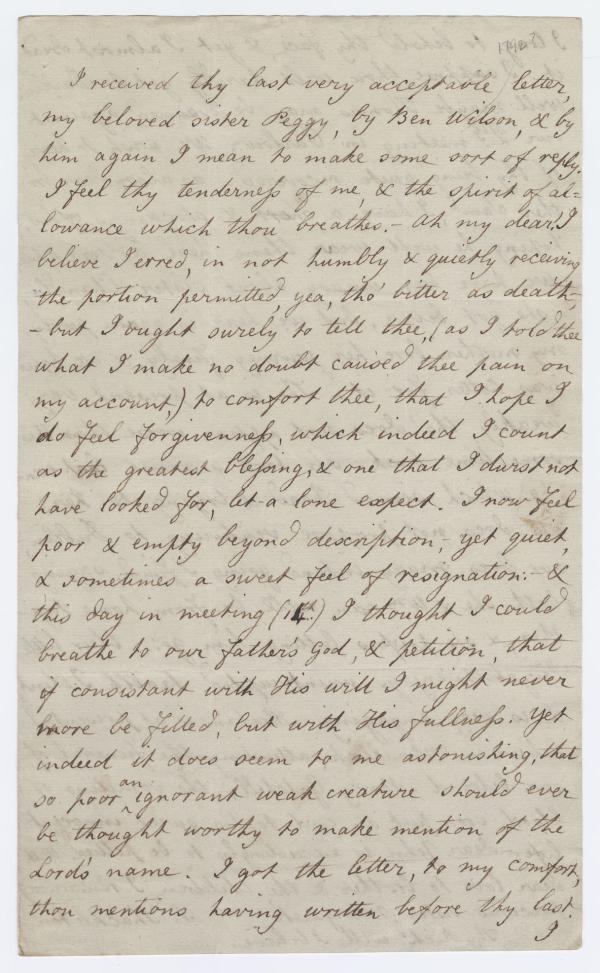 I received thy last very acceptable letter,
my beloved sister Peggy, by Ben Wilson, & by
him again I mean to make some sort of reply.
I feel thy tenderness of me, & the spirit of al=
lowance which thou breathes.- Ah my dear! I
believe I erred, in not humbly & quietly receiving
the portion permitted, yea, tho' bitter as death,-
- but I ought surely to tell thee, (as I told thee
what I make no doubt caused thee pain on
my account,) to comfort thee, that I hope I
do feel forgivenness, which indeed I count
as the greatest blessing, & one that I durst not
have looked for, let a lone expect. I now feel
poor & empty beyond description,- yet quiet,
& sometimes a sweet feel of resignation:- &
this day in meeting (1st.) I thought I could
breathe to our father's God, & petition, that
if consistant with His will I might never
more be filled, but with His fullness. Yet
indeed it does seem to me astonishing, that
so poor an ignorant weak creature should ever
be thought worthy to make mention of the
Lord's name. I got the letter, to my comfort,
thou mentions having written before thy last.
I